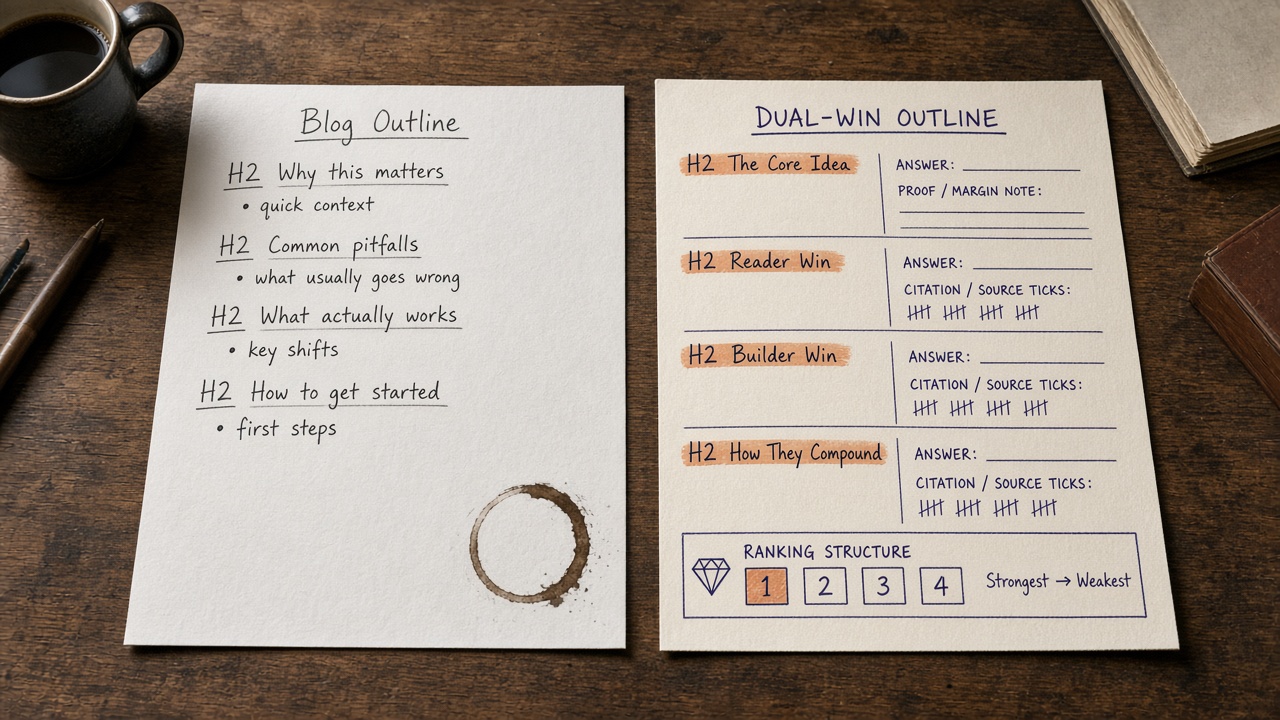 Blog Outline
H2 Why this matters
• quick context
H2 Common pitfalls
• what usually goes wrong
H2 What actually works
• key shifts
H2 How to get started
• first steps
DUAL-WIN OUTLINE
H2 The Core Idea
ANSWER:
PROOF / MARGIN NOTE:
H2 Reader Win
ANSWER:
CITATION / SOURCE TICKS:
H2 Builder Win
ANSWER:
CITATION / SOURCE TICKS:
H2 How They Compound
ANSWER:
CITATION / SOURCE TICKS:
RANKING STRUCTURE
1 2 3 4 Strongest → Weakest